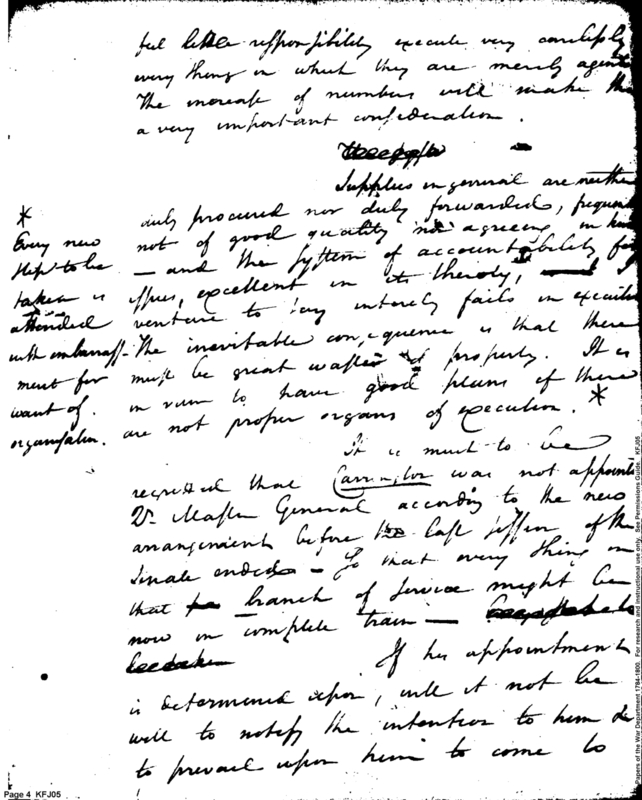 feel little responsibility execute very carelessly
every thing in which they are merely agents
The increase of numbers will make this
a very important consideration.
Supplies in general are neither
duly procured nor duly forwarded, frequently
not of good quality nor agreeing in kind
— and the System of accountability for
issues, excellent in its theory, I
venture to say interely fails in execution
The inevitable consequence is that there
must be great waste of property. It is
in vain to have good plans if there
are not proper organs of execution. *
*
Every new
step to be
taken is
attended
with embarrass-
ment for
want of
organisation.
It is much to be
regretted that Carrington was not appointed
Qr. Master General according to the new
arrangement before the last session of the
Senate ended — So that every thing in
that branch of service might be
now in complete train —
If his appointment
is determined upon, will it not be
well to notify the intention to him &
to prevail upon him to come to
Page 4 KFJ05
Papers of the War Department 1784-1800. For research and instructional use only. See Permissions Guide. KFJ05